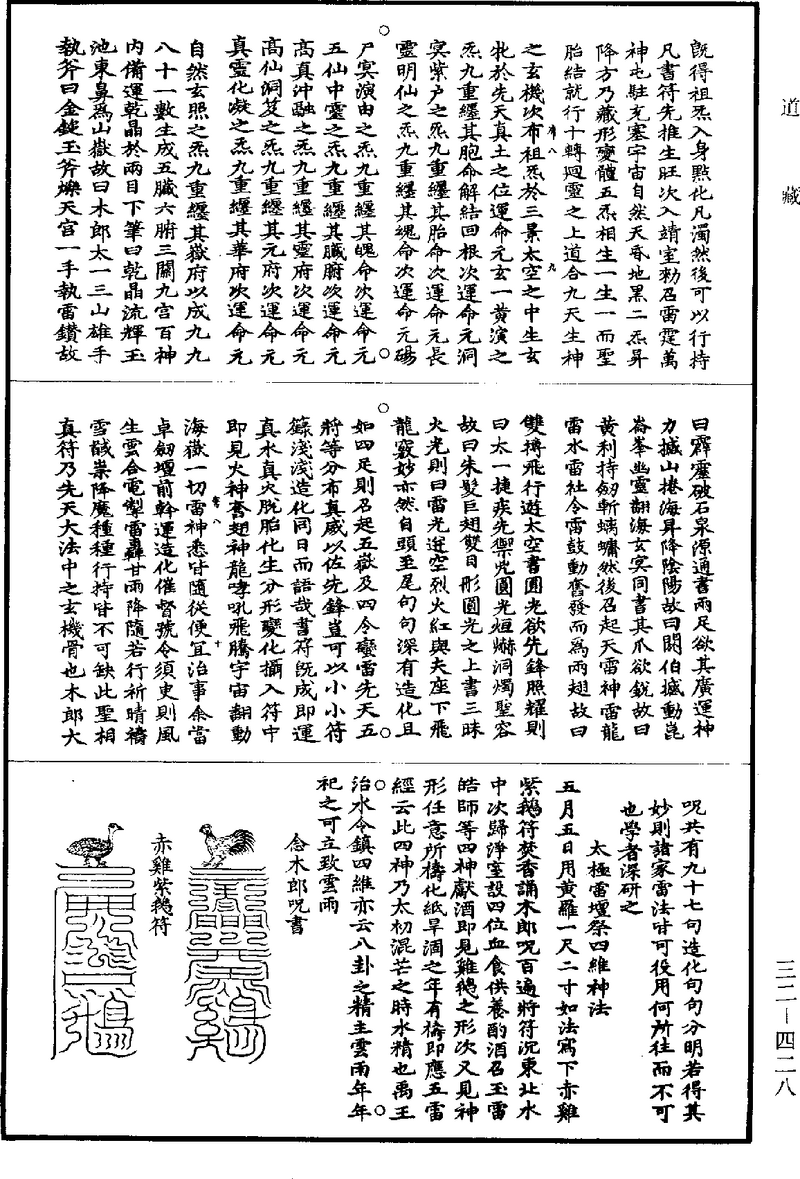 道藏
既得祖炁入身點化凡濁然後可以行持
凡書符先推生旺次入靖室勑召雷霆萬
神屯駐充塞宇宙自然天昏地黑二炁昇
降方乃藏形變體五炁相生一生一而聖
胎結就行十轉迴靈之上道合九天生神
之玄機次布祖炁於三景太空之中生玄
牝於先天真土之位運命元玄一黃演之
炁九重纏其胞命解結回根次運命元洞
冥紫户之炁九重纏其胎命次運命元長
靈明仙之炁九重纏其魂命次運命元碭
尸冥演由之炁九重纏其魄命次運命元
五仙中靈之炁九重纏其臟腑次運命元
高真沖融之炁九重纏其靈府次運命元
高仙洞笈之炁九重纏其元府次運命元
真靈化凝之炁九重纏其華府次運命元
自然玄照之炁九重纏其嶽府以成九九
八十一數生成五臟六腑三關九宮百神
內備運乾晶於兩目下筆曰乾晶流輝玉
池東鼻為山嶽故曰木郎太一三山雄手
執斧曰金鉞玉斧爍天宮一手執雷鑽故
曰霹靂破石泉源通書兩足欲其廣運神
力撼山捲海昇降陰陽故曰閼伯撼動崑
崙峯幽靈翻海玄冥同書其爪欲銳故曰
黃利持劒斬螭蠨然後召起天雷神雷龍
雷水雷社令雷鼓動奮發而為兩翅故曰
雙搏飛行遊太空書圓光欲先鋒照耀則
曰太一捷疾先禦兇圓光烜爀洞燭聖容
故曰朱髮巨翅雙目彤圓光之上書三昧
火光則曰雷光迸空烈火紅與夫座下飛
龍竅妙亦然自頭至尾句句深有造化且
如四足則召起五嶽及四令蠻雷先天五
將等分布真威以佐先鋒豈可以小小符
籙淺淺造化同日而語哉書符既成即運
真水真火脫胎化生分形變化攝入符中
即見火神奮翅神龍哮吼飛騰宇宙翻動
海嶽一切雷神悉皆隨從便宜治事余當
卓劒壇前斡運造化催督號令須臾則風
生雲合電掣雷轟甘雨降隨若行祈晴禱
雪馘祟降魔種種行持皆不可缺此聖相
真符乃先天大法中之玄機骨也木郎大
呪共有九十七句造化句句分明若得其
妙則諸家雷法皆可役用何所往而不可
也學者深研之
太極雷壇祭四維神法
五月五日用黃羅一尺二寸如法寫下赤雞
紫鵝符焚香誦木郎呪百遍將符沉東北水
中次歸淨室設四位血食供養酌酒召玉雷
皓師等四神獻酒即見雞鵝之形次又見神
形任意所禱化紙旱涸之年有禱即應五雷
經云此四神乃太初混芒之時水精也禹王
治水令鎮四維亦云八卦之精主雲雨年年
祀之可立致雲雨
念木郎呪書
赤雞紫鵝符
三二—四二八